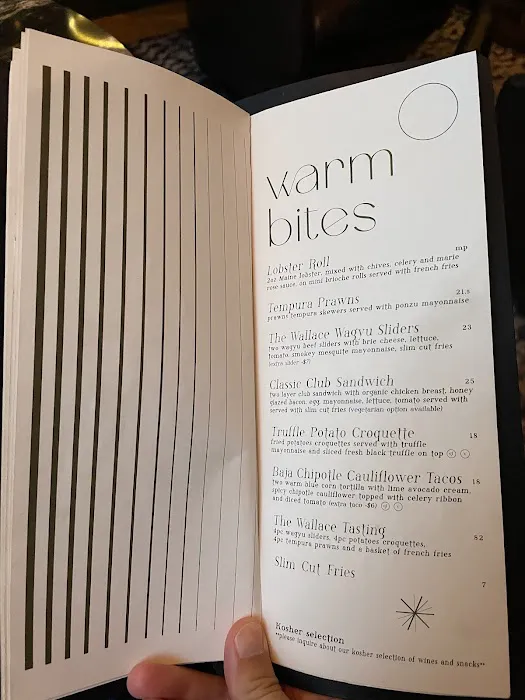 warm
bites
mp
Lobster Roll
2oz Maine lobster, mixed with chives, celery and marie
rose sauce, on mini brioche rolls served with french fries
Tempura Prawns 21.5
prawns tempura skewers served with ponzu mayonnaise
The Wallace Wagyu Sliders 23
two wagyu beef sliders with brie cheese, lettuce,
tomato, smokey mesquite mayonnaise, slim cut fries
(extra slider ~$7)
Classic Club Sandwich 25
two layer club sandwich with organic chicken breast, honey
glazed bacon, egg, mayonnaise, lettuce, tomato served with
served with slim cut fries (vegetarian option available)
Truffle Potato Croquette 18
fried potatoes croquettes served with truffle
mayonnaise and sliced fresh black truffle on top
Baja Chipotle Cauliflower Tacos 18
two warm blue corn tortilla with lime avocado cream,
spicy chipotle cauliflower topped with celery ribbon
and diced tomato (extra taco ~$6)
The Wallace Tasting 82
4pc wagyu sliders, 4pc potatoes croquettes,
4pc tempura prawns and a basket of french fries
Slim Cut Fries 7
Kosher selection
"please inquire about our kosher selection of wines and snacks"